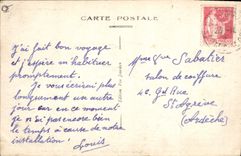 CARTE POSTALE
J'ai fait bon voyage
et j'espère m'habituer
promptement.
Je vous écrirai plus
longuement un autre
jour car en ce moment
je n'ai pas encore bien
le temps à cause de notre
installation!
Louis
Sabatier
salon de coiffure
4c, Gde Rue
St Agrève
(Ardèche)